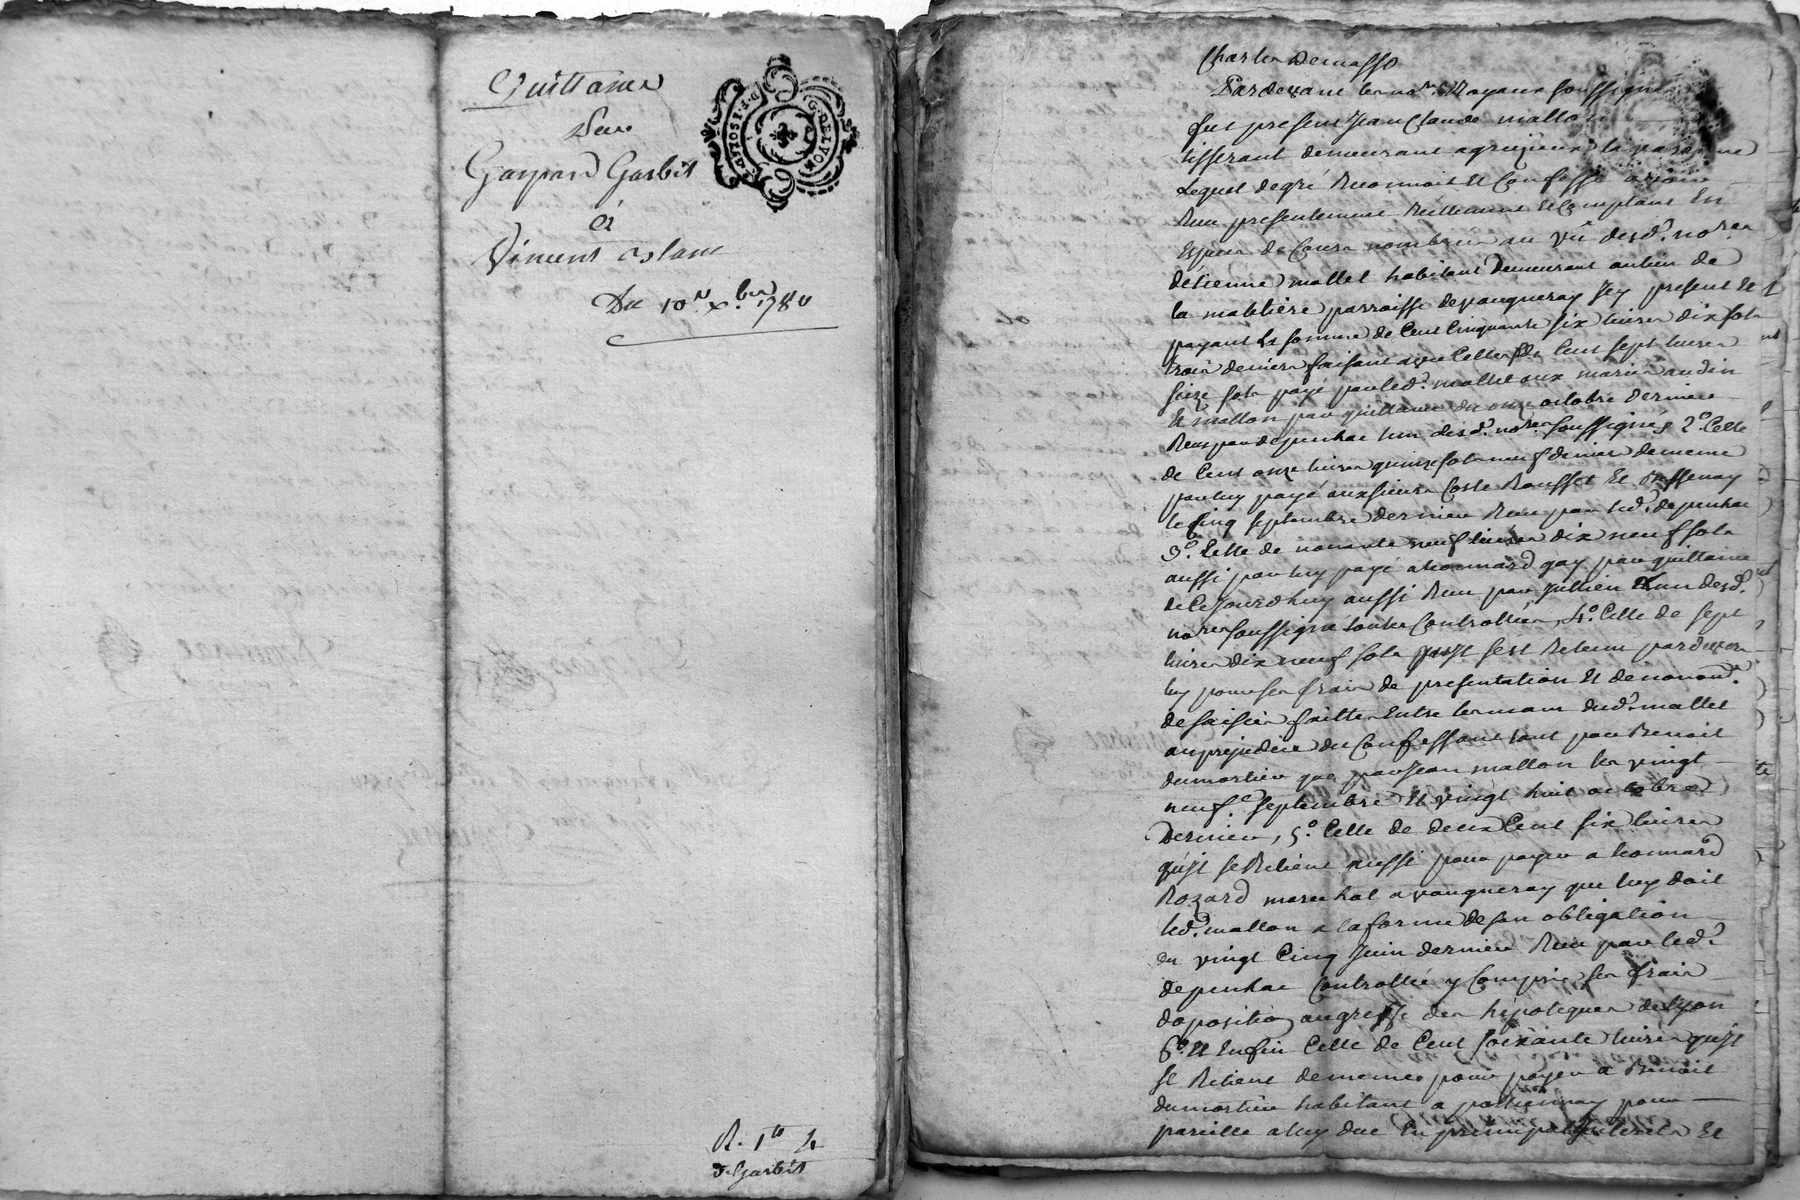 Quittance
Par
Gaspard Garbit
à
Vincent
Du 10.e x.bre 1780
G. DE LYON
R. 1tt
Garbit
Pardevant les no.res Royaux soussignés
fut present Jean Claude mallon
tisserant demeurant a grezieux la
Lequel de gré Reconnoit Et Confesse avoir
Reçu presentement Réellement Et Comptant En
Especes de Cours nombrées au vû desd. no.res
d'étienne mallet habitant demeurant au lieu de
la parroisse de vaugneray Jcy present Et
payant La somme de Cent Cinquante six livres dix sols
trois deniers faisant avec Celles de Cent sept livres
seize sols payé par led. mallet aux mariés audin
Et mallon par quittance du onze octobre dernier
Reçu par depenhac l'un desd. no.res soussignés 2.o Celle
de Cent onze livres quinze sols neuf deniers de meme
par luy payé aux sieurs Coste Rousset Et
le Cinq septembre dernier Reçu par led. depenhac
3.o Celle de nonante neuf livres dix neuf sols
aussi par luy payé a Leonnard gay par quittance
de Cejourdhuy aussi Reçu par Jullien L'un desd.
no.res soussignés toutes Controllées, 4.o Celle de sept
livres dix neuf sols qu'il s'est Retenu pardevers
luy pour ses frais de presentation Et denonon.
de saisies faittes Entre les mains dud. mallet
au préjudice du Confessant tant par Benoit
dumortier que par Jean mallon les vingt
neuf.e septembre Et vingt huit octobre
Dernier, 5.o Celle de deux Cent six livres
qu'il se Retient aussi pour payer a Leonnard
Rozard marechal a vaugneray que luy doit
led. mallon a la forme de son obligation
du vingt Cinq Juin dernier Reçu par led.
depenhac Controllée y Compris les frais
doposition au greffe des hipoteques de Lyon
6.o Et Enfin Celle de Cent soixante livres qu'il
se Retient de meme pour payer a Benoit
dumortier habitant a pollionnay pour
pareille a luy due En principal interets Et